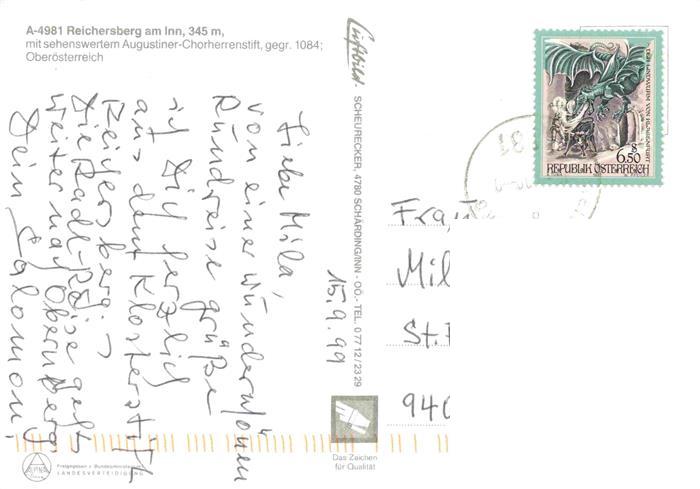 A-4981 Reichersberg am Inn, 345 m,
mit sehenswertem Augustiner-Chorherrenstift, gegr. 1084;
Oberösterreich
Liebe Mila,
von einer wunderschönen
Rundreise grüße
ich Dich herzlich
aus dem Klosterstift
Reichersberg.
Die Radl-Reise geht
weiter nach Obernberg
Dein Salomon,
15.9.99
Luftbild
SCHEURECKER, 4780 SCHÄRDING/INN - OÖ.- TEL. 0 77 12 / 23 29
Das Zeichen
für Qualität
ALPINA
Freigegeben v. Bundesministerium f.
LANDESVERTEIDIGUNG
DER LINDWURM VON KLAGENFURT
S
6.50
REPUBLIK ÖSTERREICH
Fra
Mil
St.
940